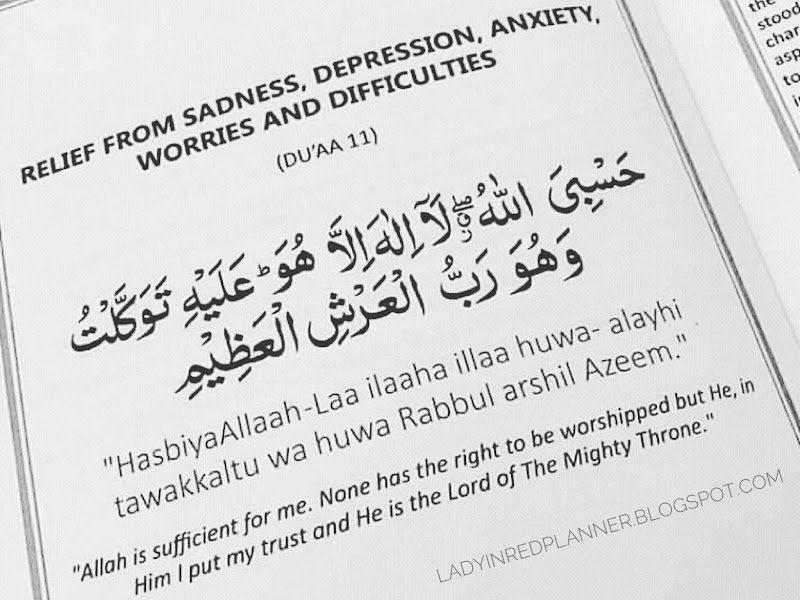 RELIEF FROM SADNESS, DEPRESSION, ANXIETY,
WORRIES AND DIFFICULTIES
(DU'AA 11)
حَسْبِیَ اللّٰهُ ۖ لَاۤ اِلٰهَ اِلَّا هُوَ ؕ عَلَیْهِ تَوَكَّلْتُ
وَهُوَ رَبُّ الْعَرْشِ الْعَظِیْمِ
"HasbiyaAllaah-Laa ilaaha illaa huwa- alayhi
tawakkaltu wa huwa Rabbul arshil Azeem."
"Allah is sufficient for me. None has the right to be worshipped but He, in
Him I put my trust and He is the Lord of The Mighty Throne."
LADYINREDPLANNER.BLOGSPOT.COM
the
stood